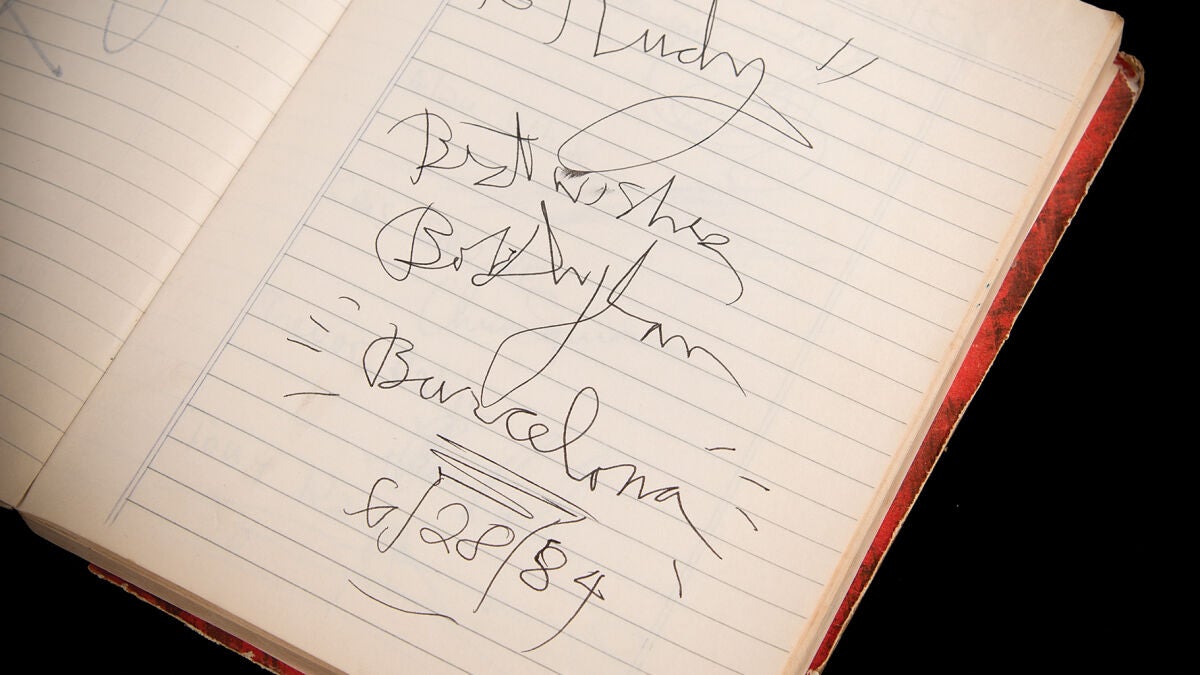 To Rudy"
Best wishes
Bob Dylan
Barcelona
6/28/84